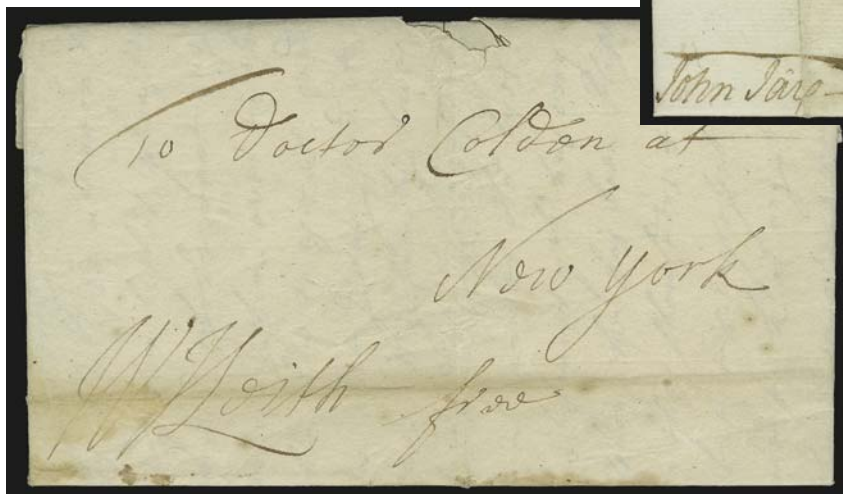 John Jay
To Doctor Colden at
New York
WKeith free